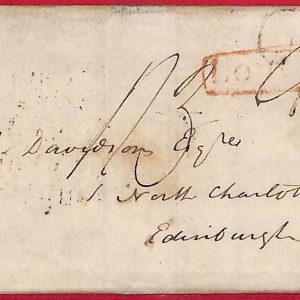 LO
Davidson Esqre
1 North Charlot
Edinburgh